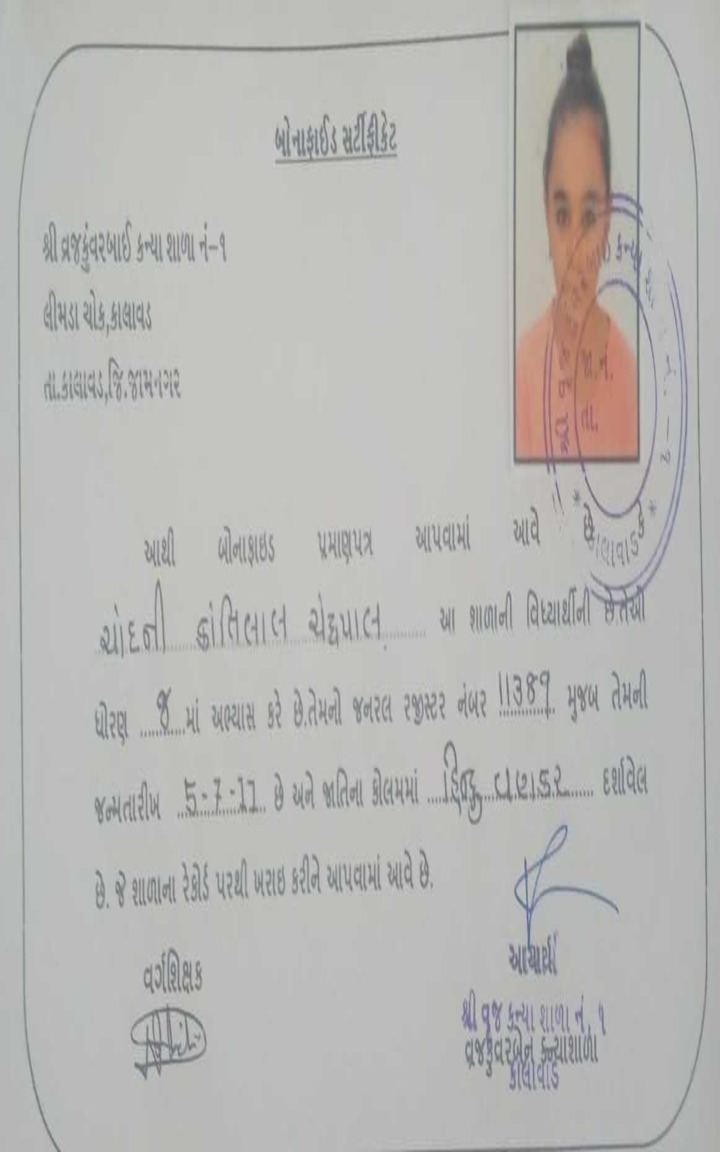 બોનાફાઈડ સર્ટીફીકેટ
શ્રી વ્રજકુંવરબાઈ કન્યા શાળા નં-૧
લીમડા ચોક,કાલાવડ
તા.કાલાવડ,જિ.જામનગર
આથી બોનાફાઇડ પ્રમાણપત્ર આપવામાં આવે છે કે
ચાંદની કાંતિલાલ ચંદ્રપાલ આ શાળાની વિધ્યાર્થીની છે.તેઓ
ધોરણ ......... માં અભ્યાસ કરે છે.તેમનો જનરલ રજીસ્ટર નંબર ૧૧૩૪૧ મુજબ તેમની
જન્મતારીખ 5-7-11 છે અને જાતિના કોલમમાં હિન્દુ વણકર દર્શાવેલ
છે. જે શાળાના રેકોર્ડ પરથી ખરાઇ કરીને આપવામાં આવે છે.
વર્ગશિક્ષક
આચાર્ય
શ્રી વ્રજ કન્યા શાળા નં. ૧
વ્રજકુંવરબેન કન્યાશાળા
કાલાવાડ
જા.નં.
તા.